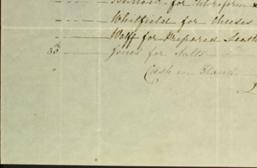 for
Whitfield for Cheeses
Wolff for Prepared Leath
33 Jones for Salts
Cash in Hand